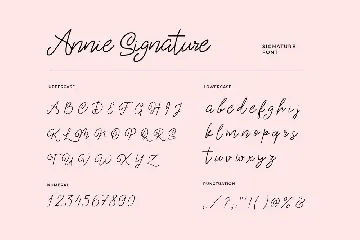 Annie Signature
SIGNATURE
FONT
UPPERCASE
A B C D E F G H I J
K L M N O P Q R S
T U V W X Y Z
LOWERCASE
a b c d e f g h i j
k l m n o p q r s
t u v w x y z
NUMERAL
1 2 3 4 5 6 7 8 9 0
PUNCTUATION
, . / ? , " " ! ( ) @ % &